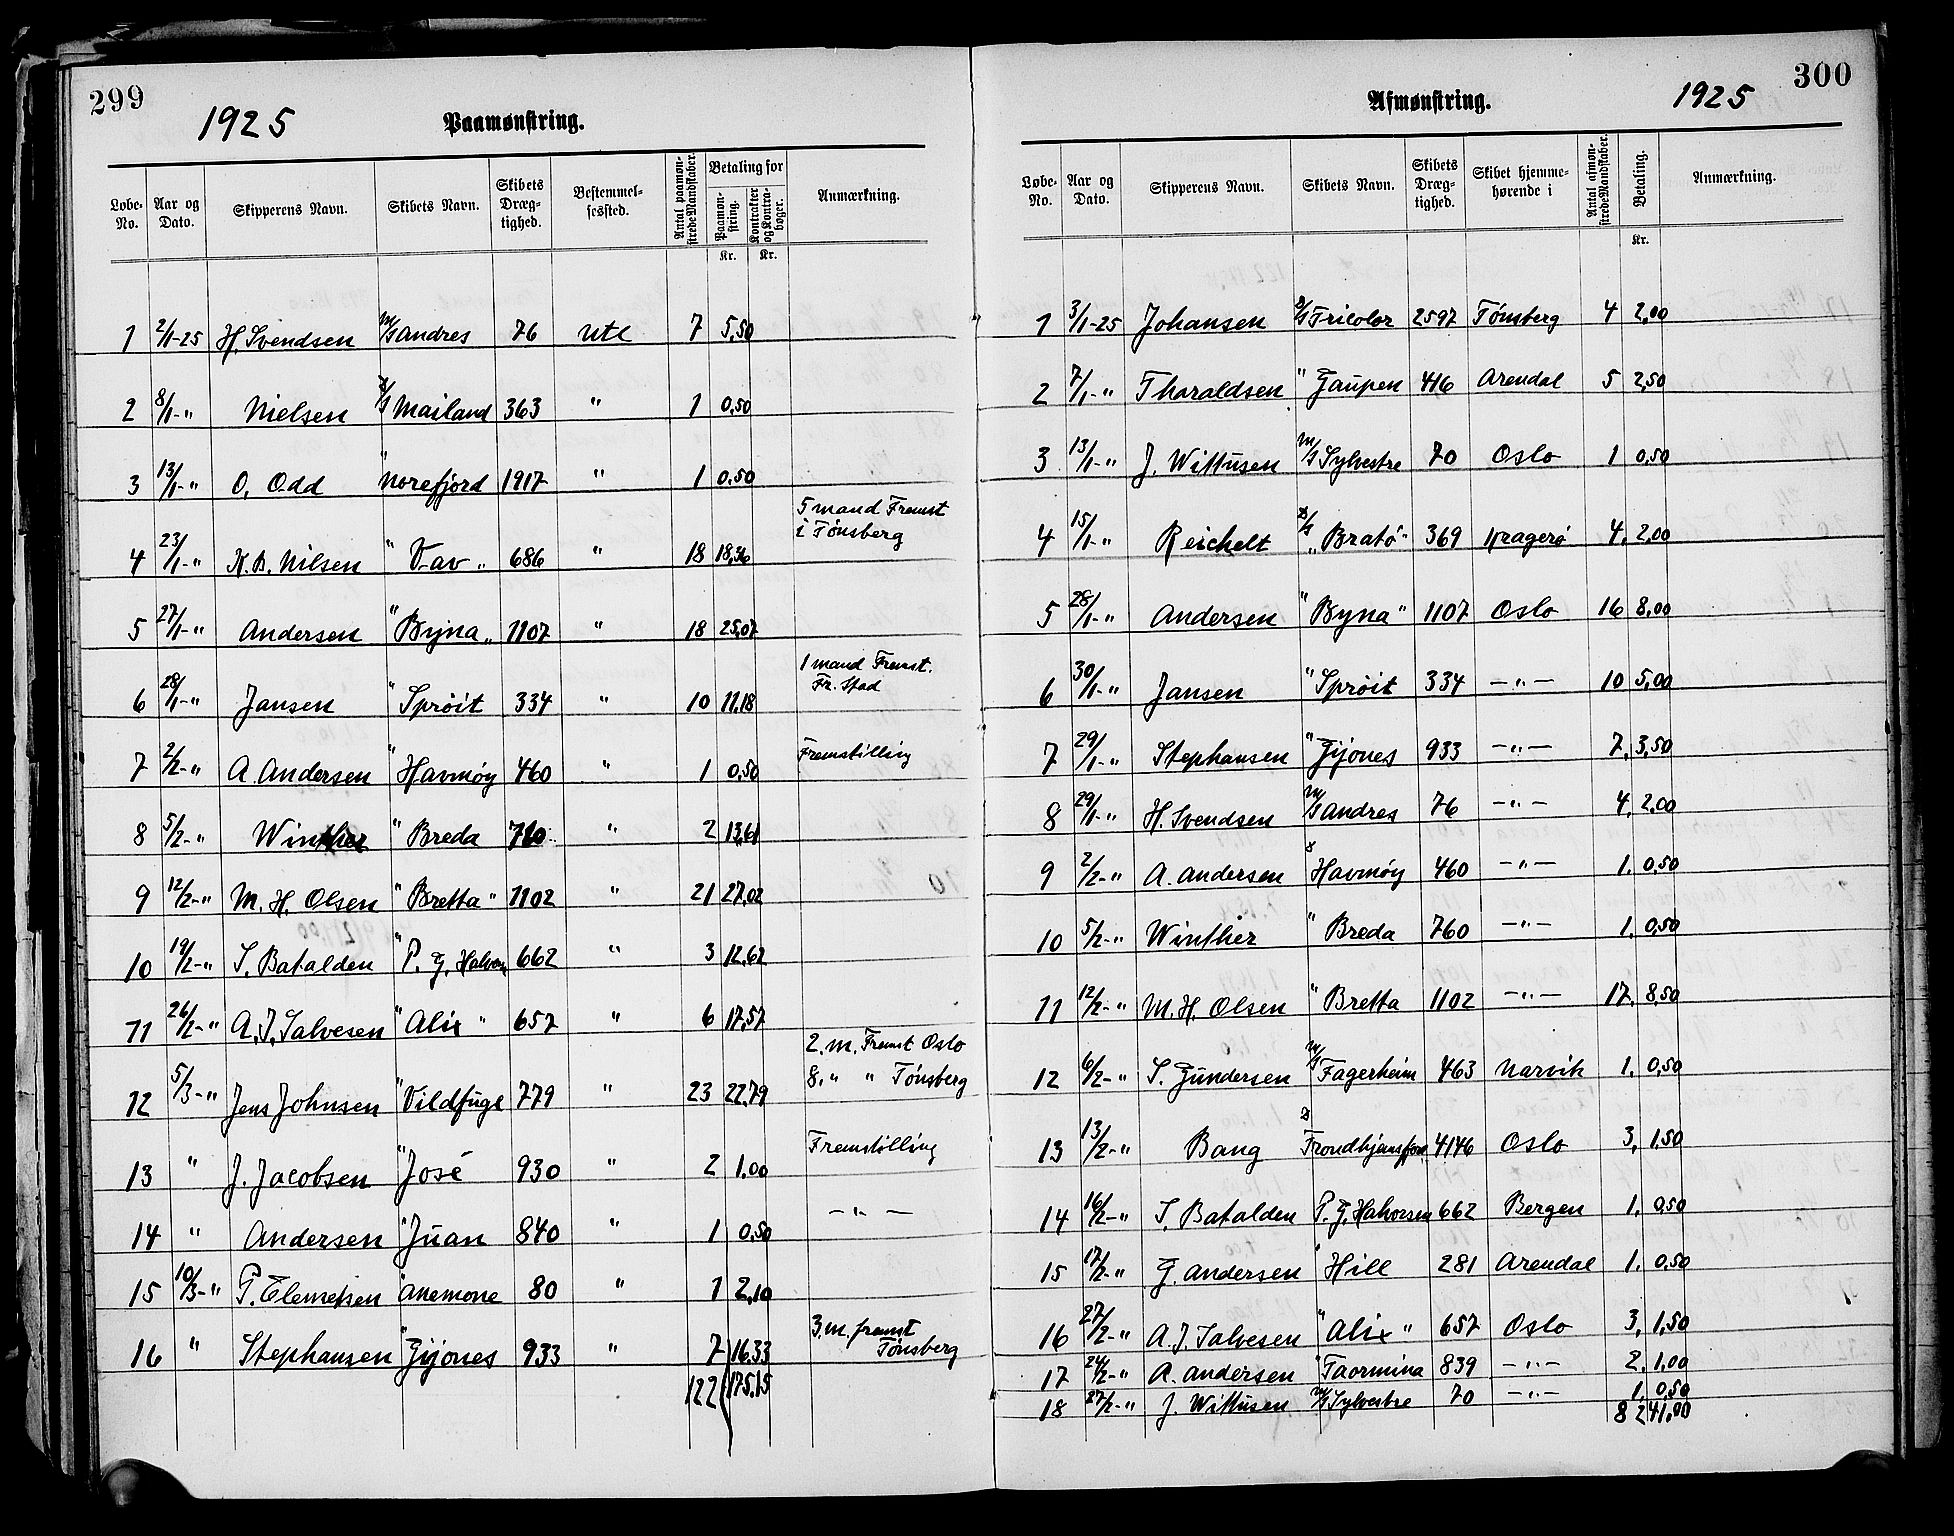 299
1925 Paamønstring.
Løbe-No. Aar og Dato. Skipperens Navn. Skibets Navn. Skibets Dræg-tighed. Bestemmel-sessted. Antal paamøn-strede Mandskaber. Betaling for Paamøn-string. Kr. Kontrakter og Kontra-bøger. Kr. Anmærkning.
1 2/1-25 H. Svendsen m/s Andres 76 Utl 7 5,50
2 8/1-" Nielsen d/s Mailand 363 " 1 0,50
3 13/1-" O. Odd " Norefjord 1917 " 1 0,50
4 23/1-" K.B. Nilsen " Vav " 686 " 18 18,36 5 mand Fremst i Tønsberg
5 27/1-" Andersen " Byna " 1107 " 18 25,07
6 28/1-" Jansen " Sprøit 334 " 10 11,18 1 mand Fremst. Fr.Stad
7 2/2-" A. Andersen " Havmøy 460 " 1 0,50 Fremstilling
8 5/2-" Winther " Breda 760 " 2 13,61
9 12/2-" M. H. Olsen " Bretta " 1102 " 21 27,02
10 19/2-" S. Batalden " P. G. Halvorsen 662 " 3 12,62
11 26/2-" A.J. Salvesen " Alix " 657 " 6 17,57
12 5/3-" Jens Johnsen " Vildfugl 779 " 23 22,79 2. m. Fremst Oslo 8. " " Tønsberg
13 " J. Jacobsen " José 930 " 2 1.00 Fremstilling
14 " Andersen " Juan 840 " 1 0,50 — " —
15 10/3-" P. Clemetsen " Anemone 80 " 1 2,10
16 " Stephansen " Gijones 933 " 7 16.33 3. m. fremst Tønsberg
122 175.15
300
Afmønstring. 1925
Løbe-No. Aar og Dato. Skipperens Navn. Skibets Navn. Skibets Dræg-tighed. Skibet hjemme-hørende i Antal afmøn-strede Mandskaber. Betaling. Kr. Anmærkning.
1 3/1-25 Johansen d/s Tricolor 2597 Tønsberg 4 2,00
2 7/1-" Tharaldsen " Gaupen 416 Arendal 5 2,50
3 13/1-" J. Wittusen m/s Sylvestre 70 Oslo 1 0,50
4 15/1-" Reichelt d/s "Bratö" 369 Kragerø 4. 2,00
5 28/1-" Andersen " Byna " 1107 Oslo 16 8,00
6 30/1-" Jansen " Sprøit 334 — " — 10 5,00
7 29/1-" Stephansen " Gijones 933 — " — 7. 3,50
8 29/1-" H. Svendsen m/s Andres 76 — " — 4. 2,00
9 2/2-" A. Andersen Havmøy 460 — " — 1. 0,50
10 5/2-" Winther " Breda 760 — " — 1. 0,50
11 12/2-" M. H. Olsen " Bretta 1102 — " — 17. 8,50
12 6/2-" S. Gundersen m/s Fagerheim 463 Narvik 1. 0,50
13 13/2-" Bang Trondhjemsfjord 4146 Oslo 3, 1,50
14 16/2-" S. Batalden P. G. Halvorsen 662 Bergen 1. 0,50
15 17/2-" G. Andersen " Hill 281 Arendal 1. 0,50
16 27/2-" A.J. Salvesen " Alix " 657 Oslo 3, 1,50
17 24/2-" A. Andersen " Taormina 839 — " — 2. 1,00
18 27/2-" J. Wittusen m/s Sylvestre 70 — " — 1. 0,50
82 41,00